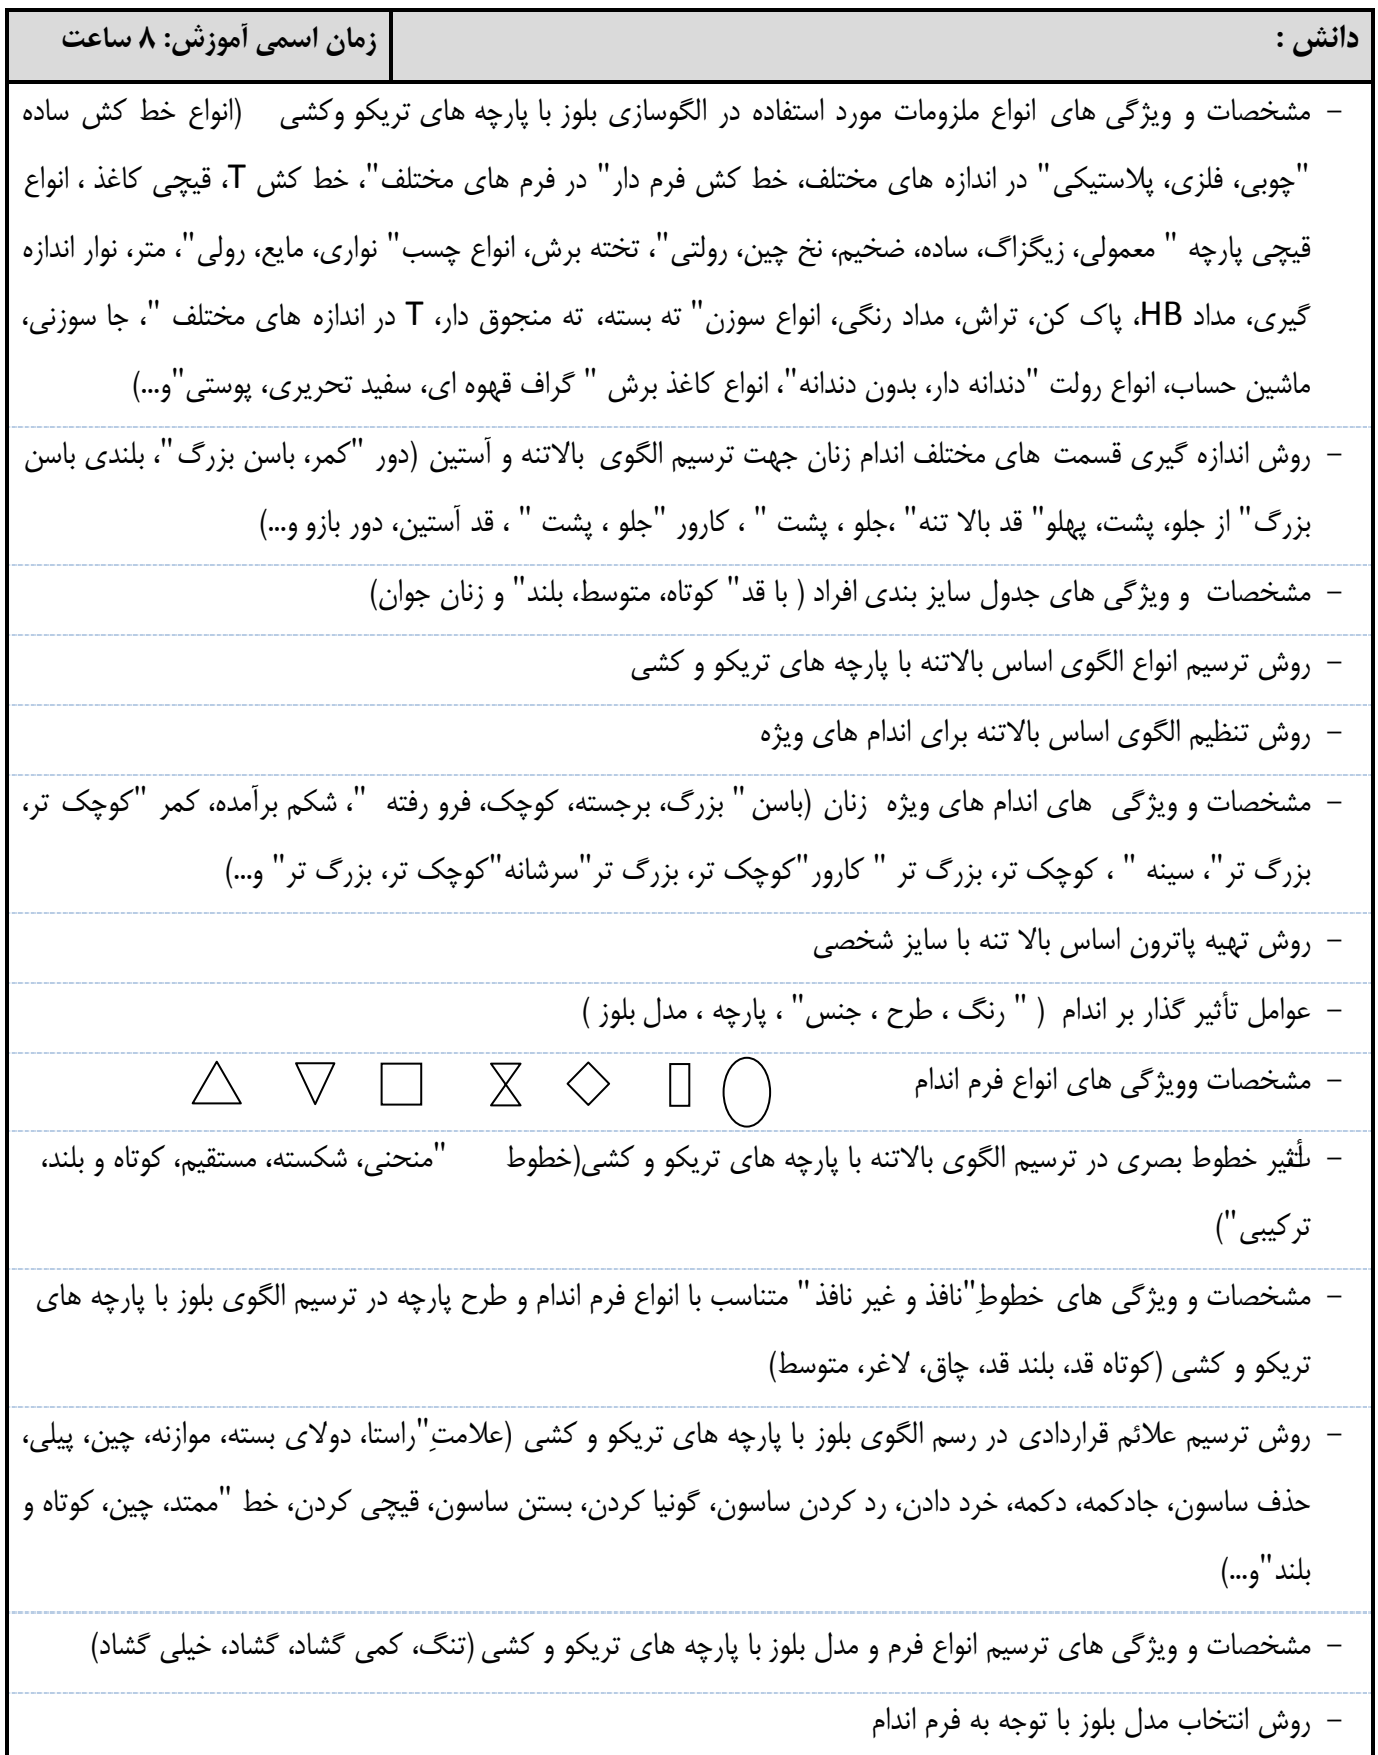 دانش :
زمان اسمی آموزش: ۸ ساعت
- مشخصات و ویژگی های انواع ملزومات مورد استفاده در الگوسازی بلوز با پارچه های تریکو وکشی (انواع خط کش ساده
"چوبی، فلزی، پلاستیکی" در اندازه های مختلف، خط کش فرم دار" در فرم های مختلف"، خط کش T، قیچی کاغذ ، انواع
قیچی پارچه " معمولی، زیگزاگ، ساده، ضخیم، نخ چین، رولتی"، تخته برش، انواع چسب" نواری، مایع، رولی"، متر، نوار اندازه
گیری، مداد HB، پاک کن، تراش، مداد رنگی، انواع سوزن" ته بسته، ته منجوق دار، T در اندازه های مختلف "، جا سوزنی،
ماشین حساب، انواع رولت "دندانه دار، بدون دندانه"، انواع کاغذ برش " گراف قهوه ای، سفید تحریری، پوستی"و...)
- روش اندازه گیری قسمت های مختلف اندام زنان جهت ترسیم الگوی بالاتنه و آستین (دور "کمر، باسن بزرگ"، بلندی باسن
بزرگ" از جلو، پشت، پهلو" قد بالا تنه" ،جلو ، پشت " ، کارور "جلو ، پشت " ، قد آستین، دور بازو و...)
- مشخصات و ویژگی های جدول سایز بندی افراد ( با قد" کوتاه، متوسط، بلند" و زنان جوان)
- روش ترسیم انواع الگوی اساس بالاتنه با پارچه های تریکو و کشی
- روش تنظیم الگوی اساس بالاتنه برای اندام های ویژه
- مشخصات و ویژگی های اندام های ویژه زنان (باسن " بزرگ، برجسته، کوچک، فرو رفته "، شکم برآمده، کمر "کوچک تر،
بزرگ تر"، سینه " ، کوچک تر، بزرگ تر " کارور"کوچک تر، بزرگ تر"سرشانه"کوچک تر، بزرگ تر" و...)
- روش تهیه پاترون اساس بالا تنه با سایز شخصی
- عوامل تأثیر گذار بر اندام ( " رنگ ، طرح ، جنس" ، پارچه ، مدل بلوز )
- مشخصات وویژگی های انواع فرم اندام
- تأثیر خطوط بصری در ترسیم الگوی بالاتنه با پارچه های تریکو و کشی(خطوط "منحنی، شکسته، مستقیم، کوتاه و بلند،
ترکیبی")
- مشخصات و ویژگی های خطوطِ"نافذ و غیر نافذ" متناسب با انواع فرم اندام و طرح پارچه در ترسیم الگوی بلوز با پارچه های
تریکو و کشی (کوتاه قد، بلند قد، چاق، لاغر، متوسط)
- روش ترسیم علائم قراردادی در رسم الگوی بلوز با پارچه های تریکو و کشی (علامتِ"راستا، دولای بسته، موازنه، چین، پیلی،
حذف ساسون، جادکمه، دکمه، خرد دادن، رد کردن ساسون، گونیا کردن، بستن ساسون، قیچی کردن، خط "ممتد، چین، کوتاه و
بلند"و...)
- مشخصات و ویژگی های ترسیم انواع فرم و مدل بلوز با پارچه های تریکو و کشی (تنگ، کمی گشاد، گشاد، خیلی گشاد)
- روش انتخاب مدل بلوز با توجه به فرم اندام